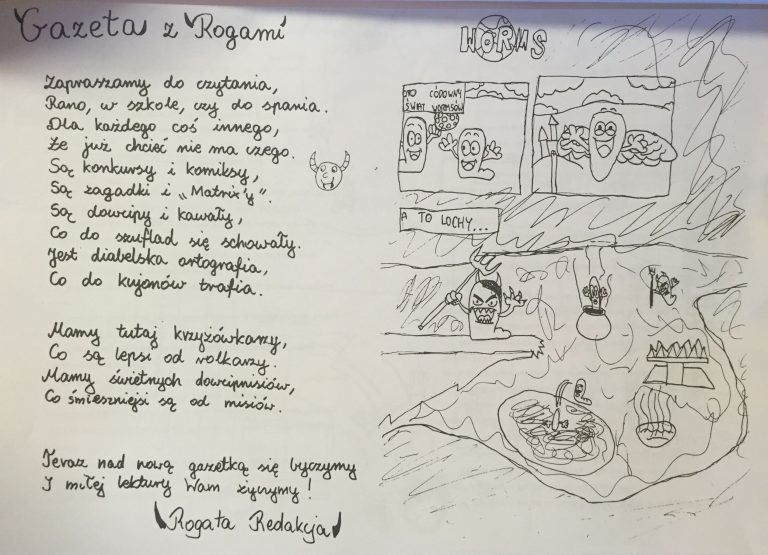 Gazeta z Rogami
Zapraszamy do czytania,
Rano, w szkole, czy do spania.
Dla każdego coś innego,
Że już chcieć nie ma czego.
Są konkursy i komiksy,
Są zagadki i „Matrix'y”.
Są dowcipy i kawały,
Co do szuflad się schowały.
Jest diabelska ortografia,
Co do kujonów trafia.
Mamy tutaj krzyżówkarzy,
Co są lepsi od rolkarzy.
Mamy świetnych dowcipnisiów,
Co śmieszniejsi są od misiów.
Teraz nad nową gazetką się byczymy
I miłej lektury Wam życzymy!
Rogata Redakcja
WORMS
OTO CÓDOWNY
ŚWIAT WORMSÓW
A TO LOCHY...